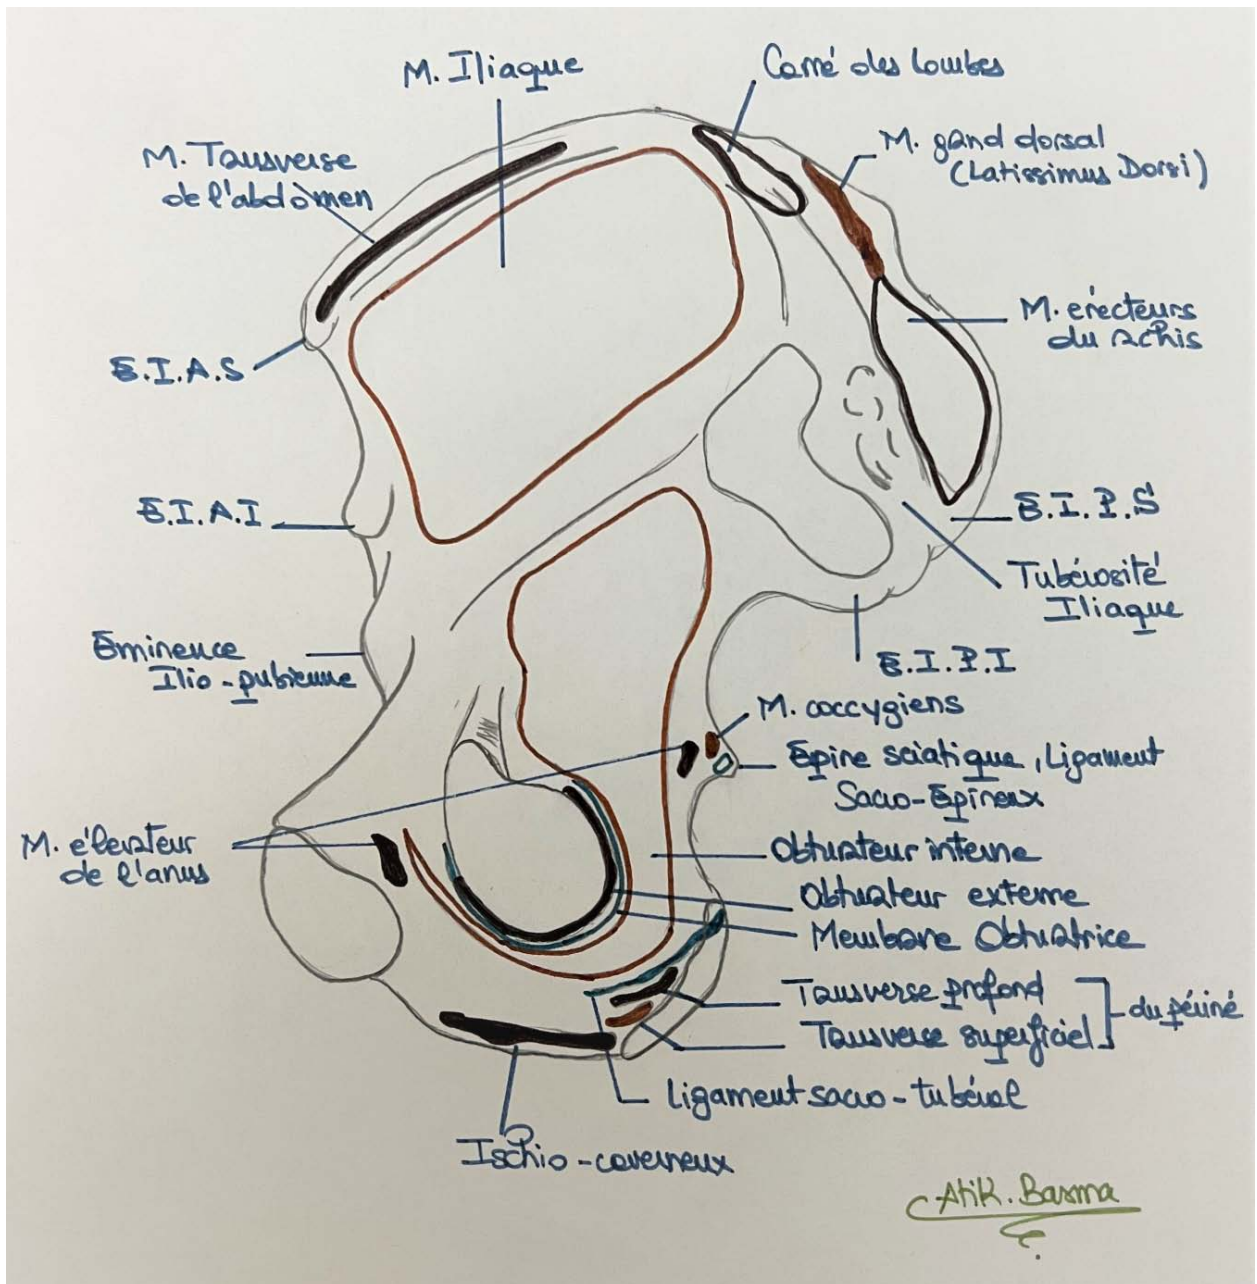 M. Iliaque
Carré des lombes
M. Tansverse
de l'abdomen
M. gand dorsal
(Latissimus Dorsi)
M. erécteurs
du rachis
E.I.A.S
E.I.A.I
E.I.P.S
Tubérosité
Iliaque
Eminence
Ilio-pubienne
E.I.P.I
M. coccygiens
Epine sciatique, Ligament
Sacro-Epineux
M. élevateur
de l'anus
Obturateur interne
Obturateur externe
Membrane Obturatrice
Tansverse profond
Tansverse superficiel
du périné
Ligament sacro-tubéral
Ischio-caverneux
Atik. Basma